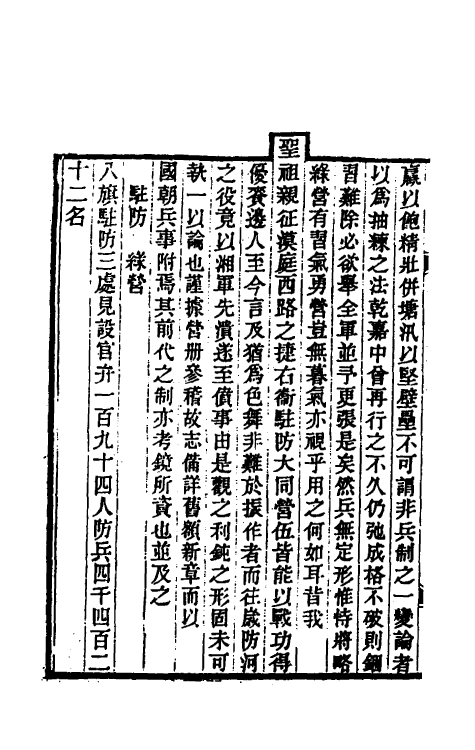 羸以飽精壯併塘汛以堅壁壘不可謂非兵制之一變論者
以爲抽練之法乾嘉中曾再行之不久仍弛成格不破則錮
習難除必欲舉全軍並予更張是矣然兵無定形惟恃將略
綠營有習氣勇營豈無暮氣亦視乎用之何如耳昔我
聖祖親征漠庭西路之捷右衞駐防大同營伍皆能以戰功得
優賚邊人至今言及猶爲色舞非難於振作者而往歲防河
之役竟以湘軍先潰遂至僨事由是觀之利鈍之形固未可
執一以論也謹據營册參稽故志備詳舊額新章而以
國朝兵事附焉其前代之制亦考鏡所資也並及之
駐防 綠營
八旗駐防三處見設官弁一百九十四人防兵四千四百二
十二名